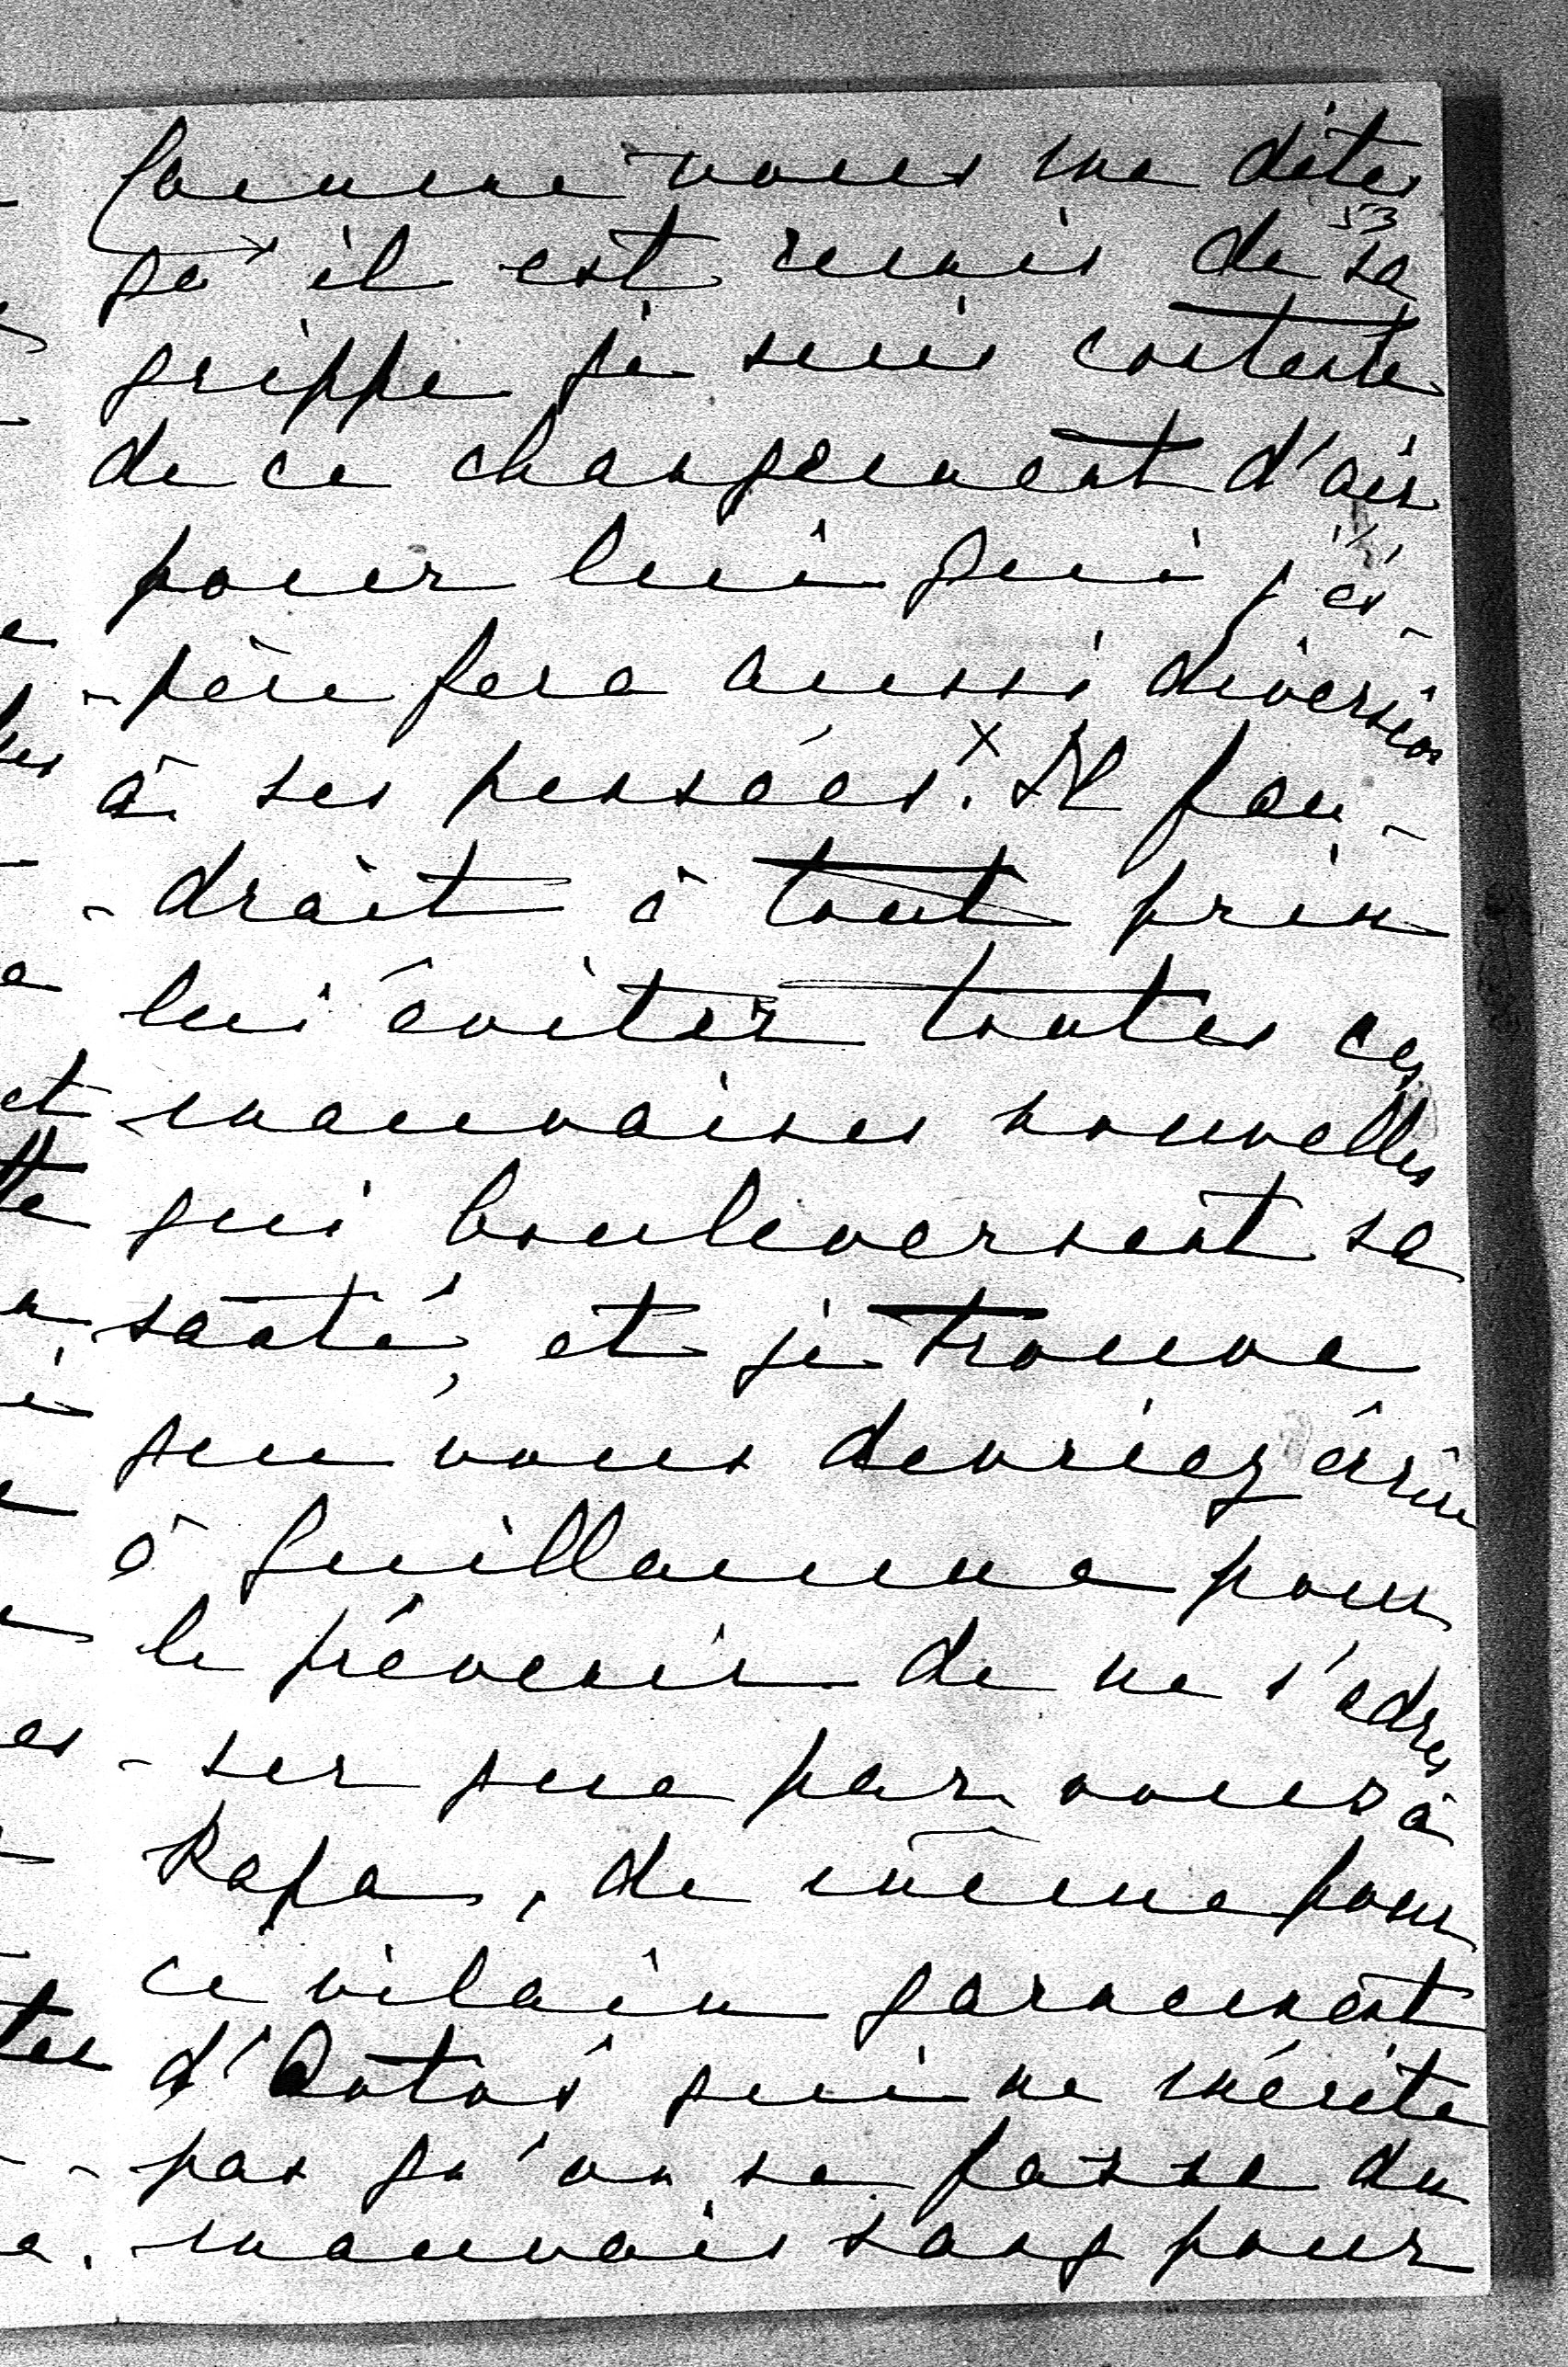 Comme vous me dites
53
qu'il est remis de sa
grippe je suis contente
de ce changement d'air
pour lui qui j'es-
-père fera aussi diversion
à ses pensées. X Il fau-
-drait à tout prix
lui éviter toutes ces
mauvaises nouvelles
qui bouleversent sa
santé, et je trouve
que vous devriez écrire
à Guillaume pour
le prévenir de ne s'adres
-ser que par vous à
Papa, de même pour
ce vilain garnement
d' qui ne mérite
pas qu'on se fasse du
mauvais sang pour